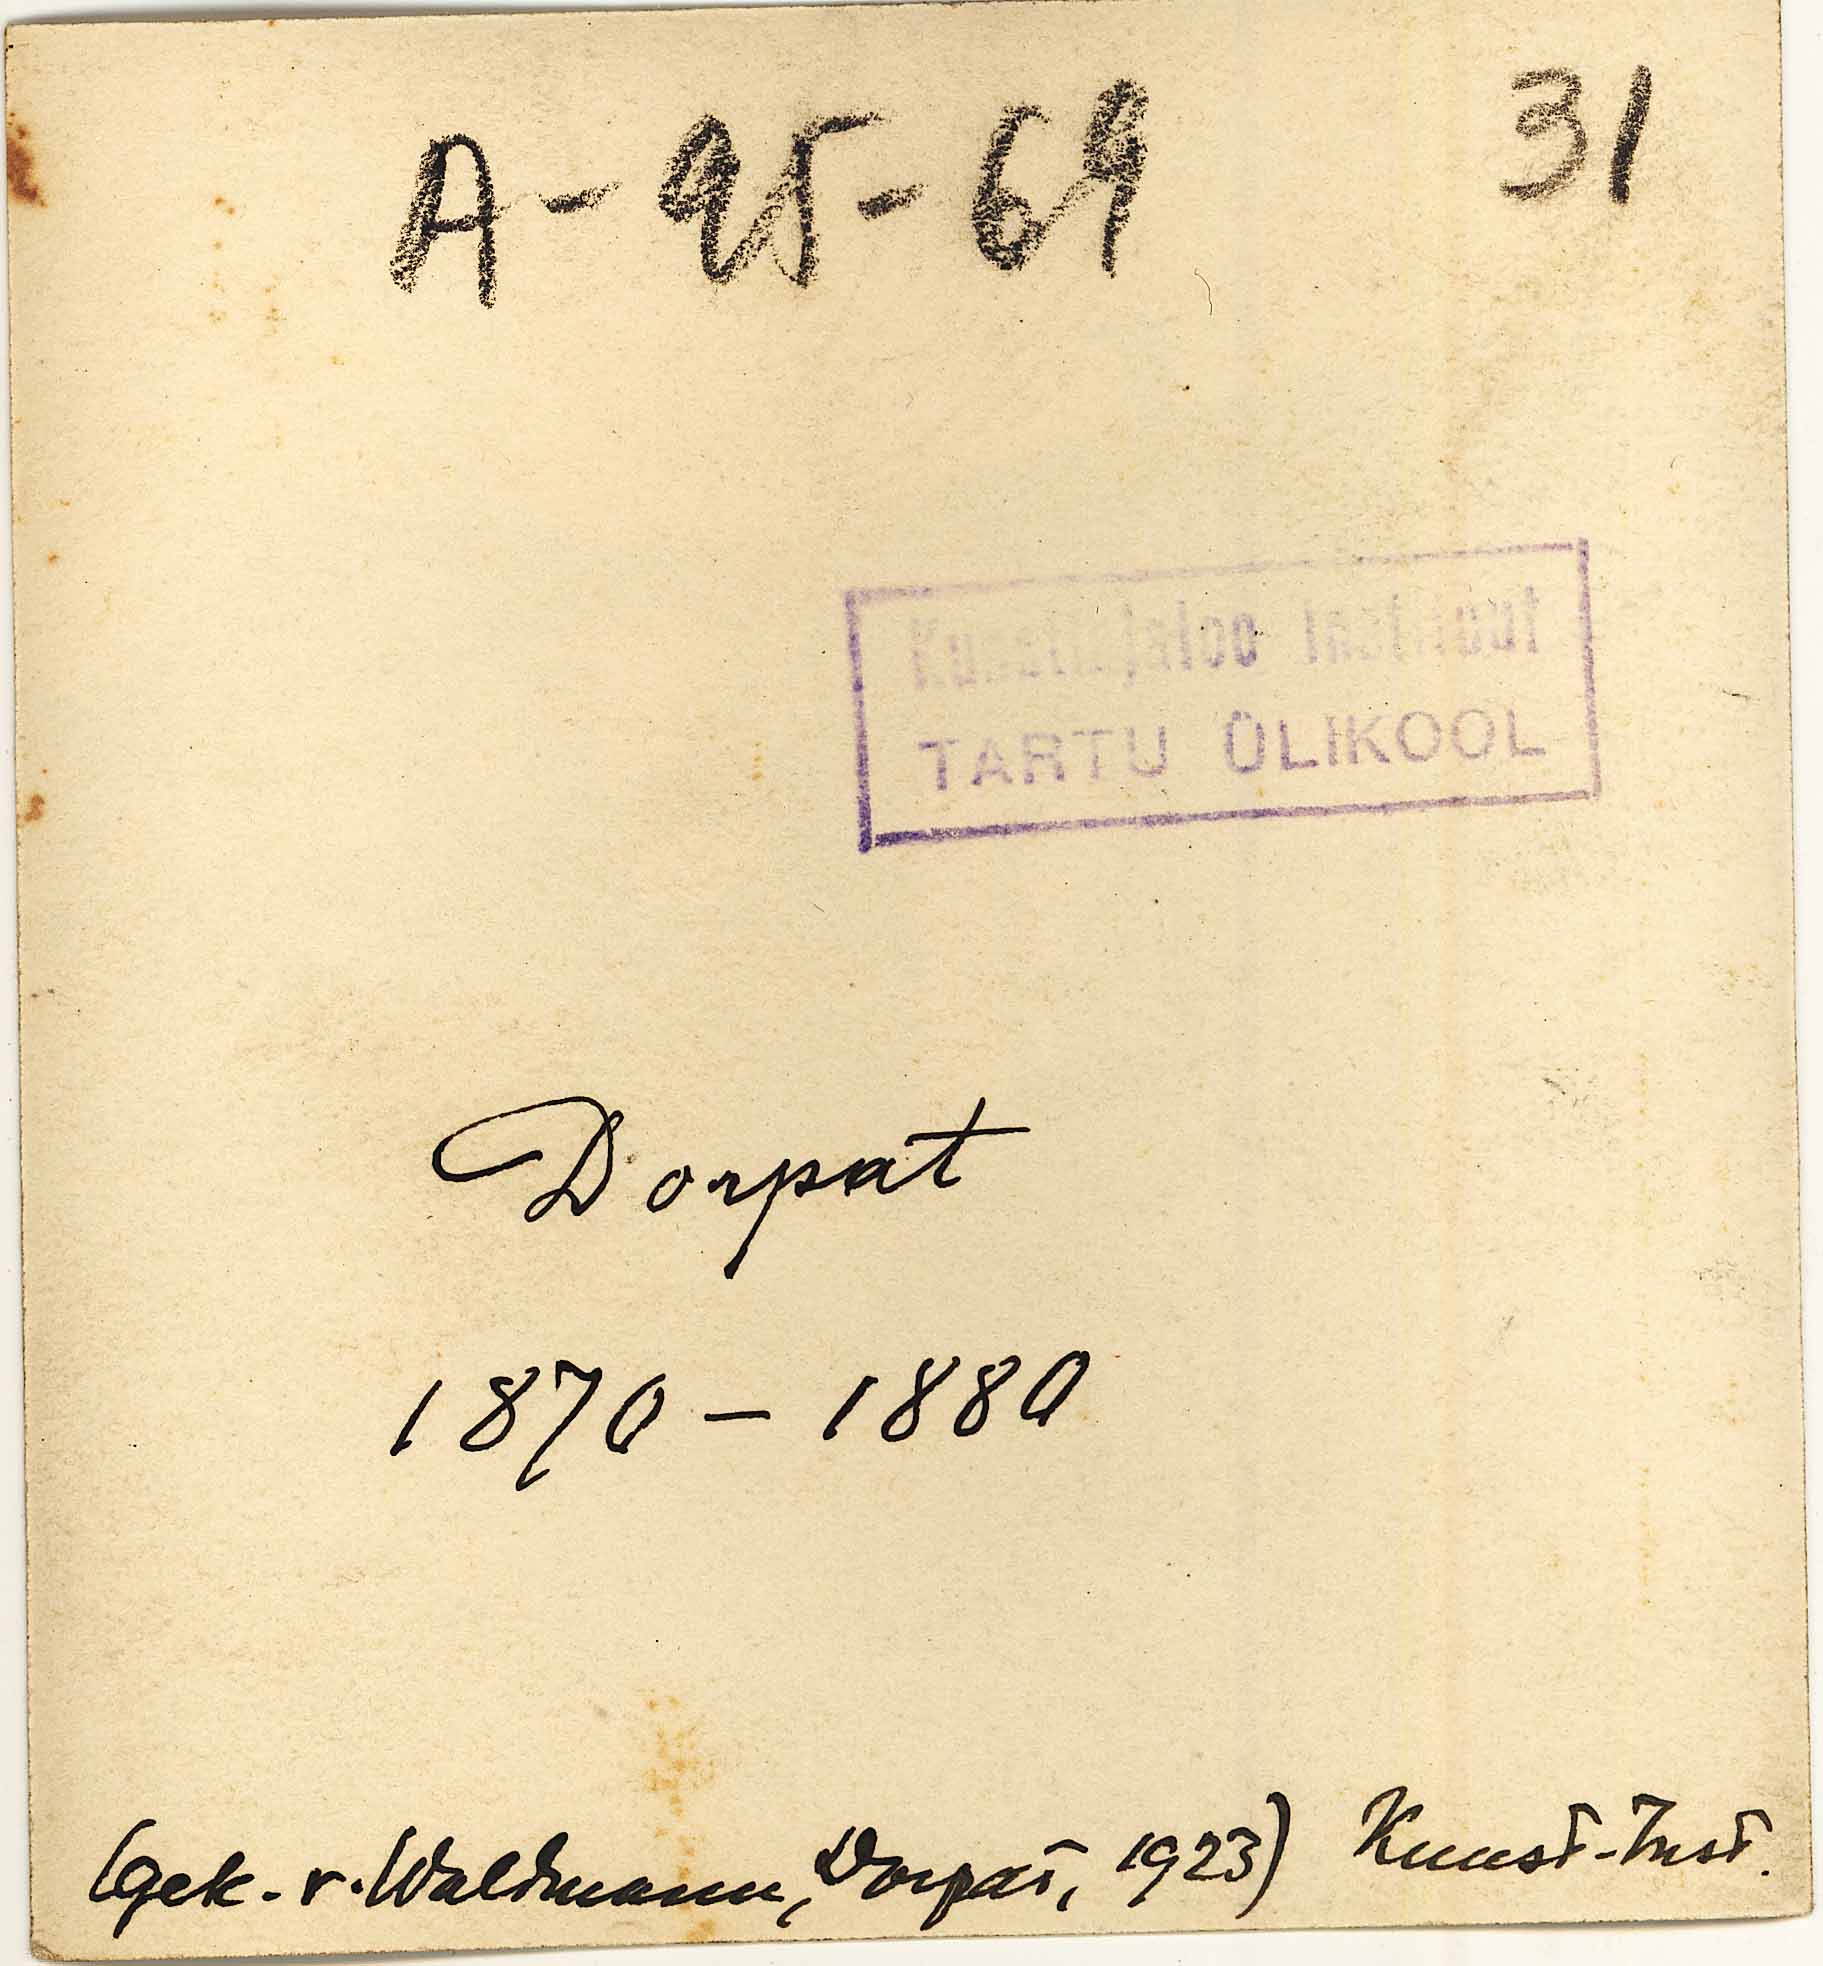 A-95-69 31
Kunstiajaloo Instituut
TARTU ÜLIKOOL
Dorpat
1870 – 1880
(gek. v. Waldmann, Dorpat, 1923) Kunst-Inst.